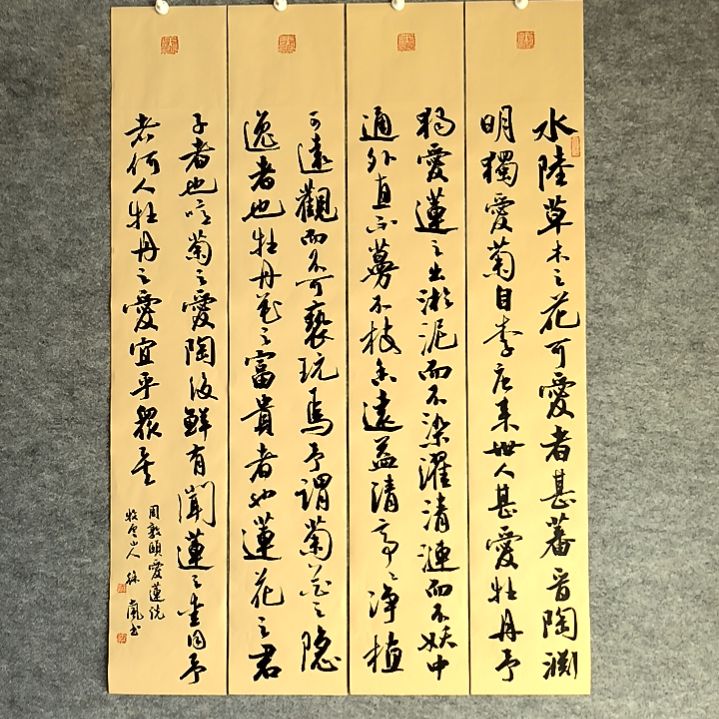 水陸草木之花可愛者甚蕃晋陶渊
明獨愛菊自李唐来世人甚愛牡丹予
獨愛蓮之出淤泥而不染濯清漣而不妖中
通外直不蔓不枝香遠益清亭〻净植
可遠觀而不可褻玩焉予謂菊花之隐
逸者也牡丹花之富貴者也蓮花之君
子者也噫菊之愛陶後鮮有聞蓮之愛同予
者何人牡丹之愛宜乎衆矣
周敦頤愛蓮说
山人徐嵐书